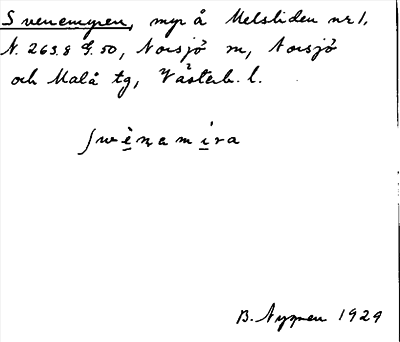 Svenemyren, myr å Melsliden nr 1,
N. 263.8 G. 50, Norsjö m, Norsjö
och Malå tg, Västerb. l.
B. Nygren 1929